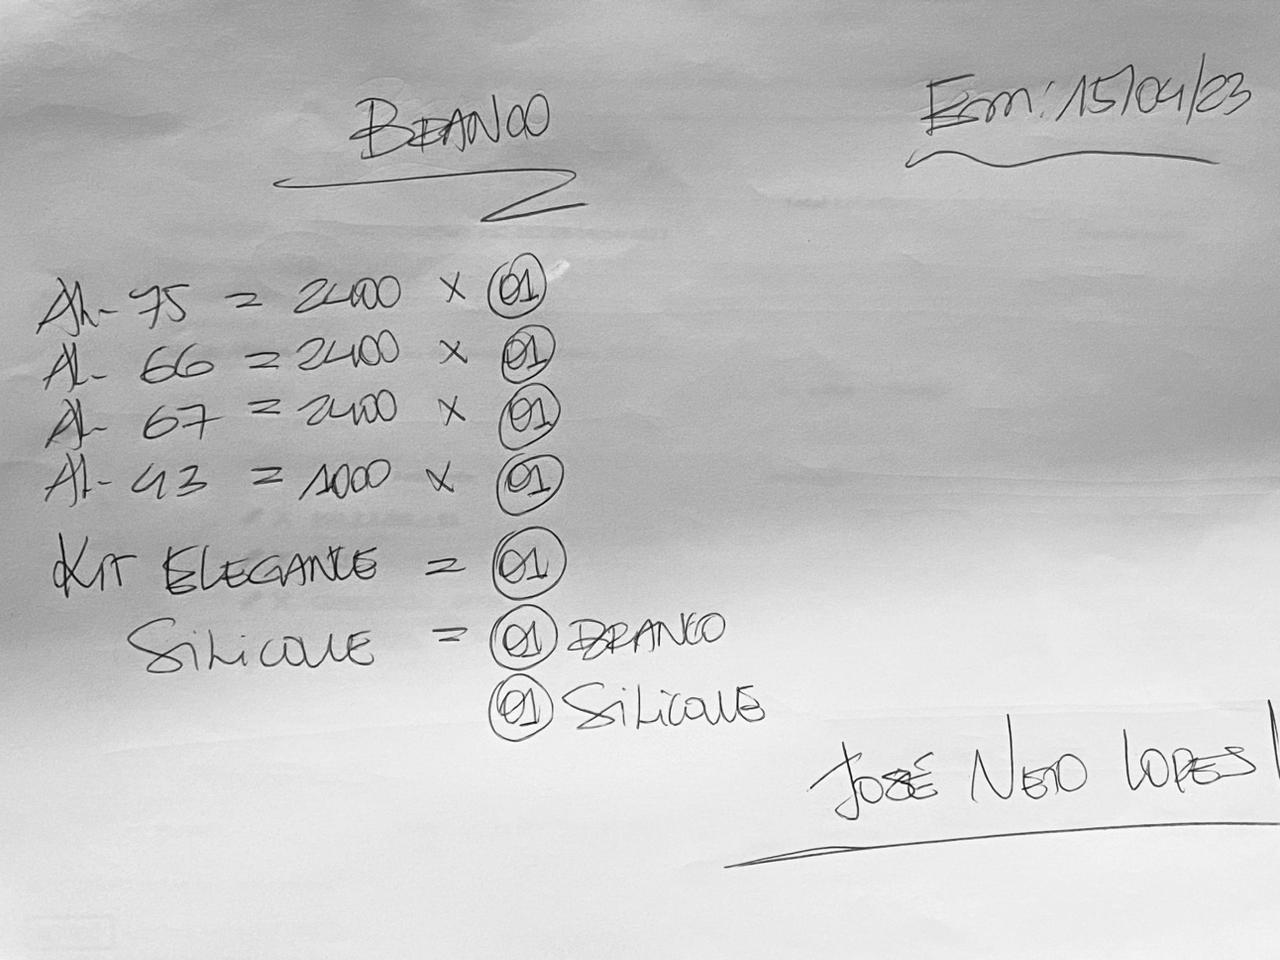 BRANCO
Em: 15/04/23
AL- 75 = 2400 x 01
AL- 66 = 2400 x 01
AL- 67 = 2400 x 01
AL- 43 = 1000 x 01
KIT ELEGANCE = 01
SILICONE = 01 BRANCO
01 SILICONE
JOSÉ NETO LOPES